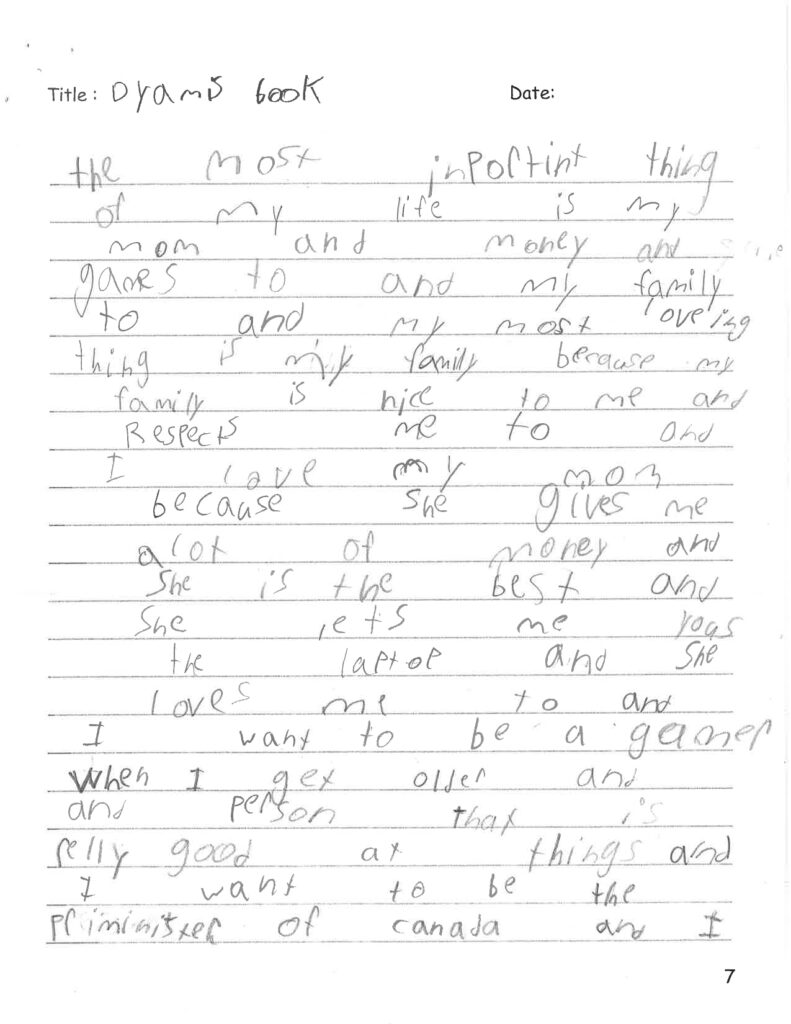 Title : Dyamis book Date:
the most inportint thing
of my life is my
mom and money and
games to and my family
to and my most loveing
thing is my family because my
family is nice to me and
Respects me to and
I love my mom
because she gives me
alot of money and
She is the best and
She lets me yous
the laptop and she
loves me to and
I want to be a gamer
when I get older and
and person that is
relly good at things and
I want to be the
priminister of canada and I
7